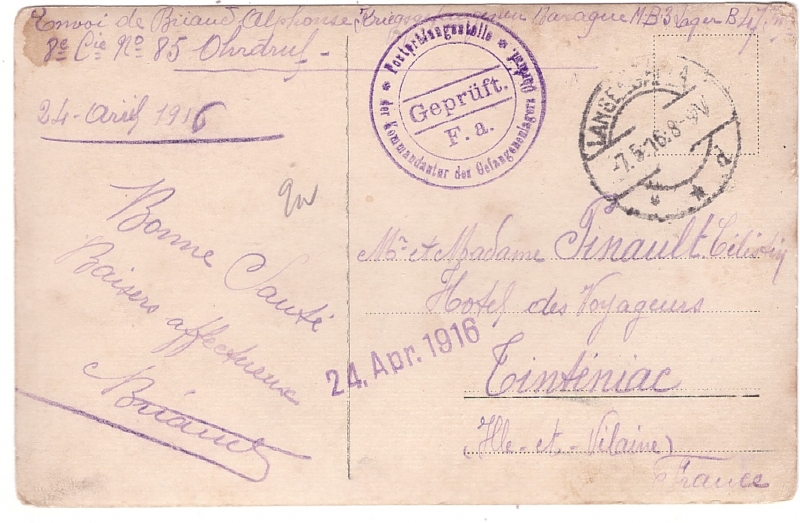 Envoi de Briand Alphonse, Kriegsgefangenen Baraque M.B3 Lager B 47
8e Cie No 85 Ohrdruf
24-avril 1916
Bonne Santé
Baisers affectueux
Briand
Postprüfungsstelle
der Kommandantur des Gefangenenlagers Ohrdruf
Geprüft.
F. a.
24. Apr. 1916
LANGENSALZA
-7.5.16.8-9V.
d
Mr et Madame Pinault. Célestin
Hotel des Voyageurs
Tinténiac
(Ille-et-Vilaine)
France